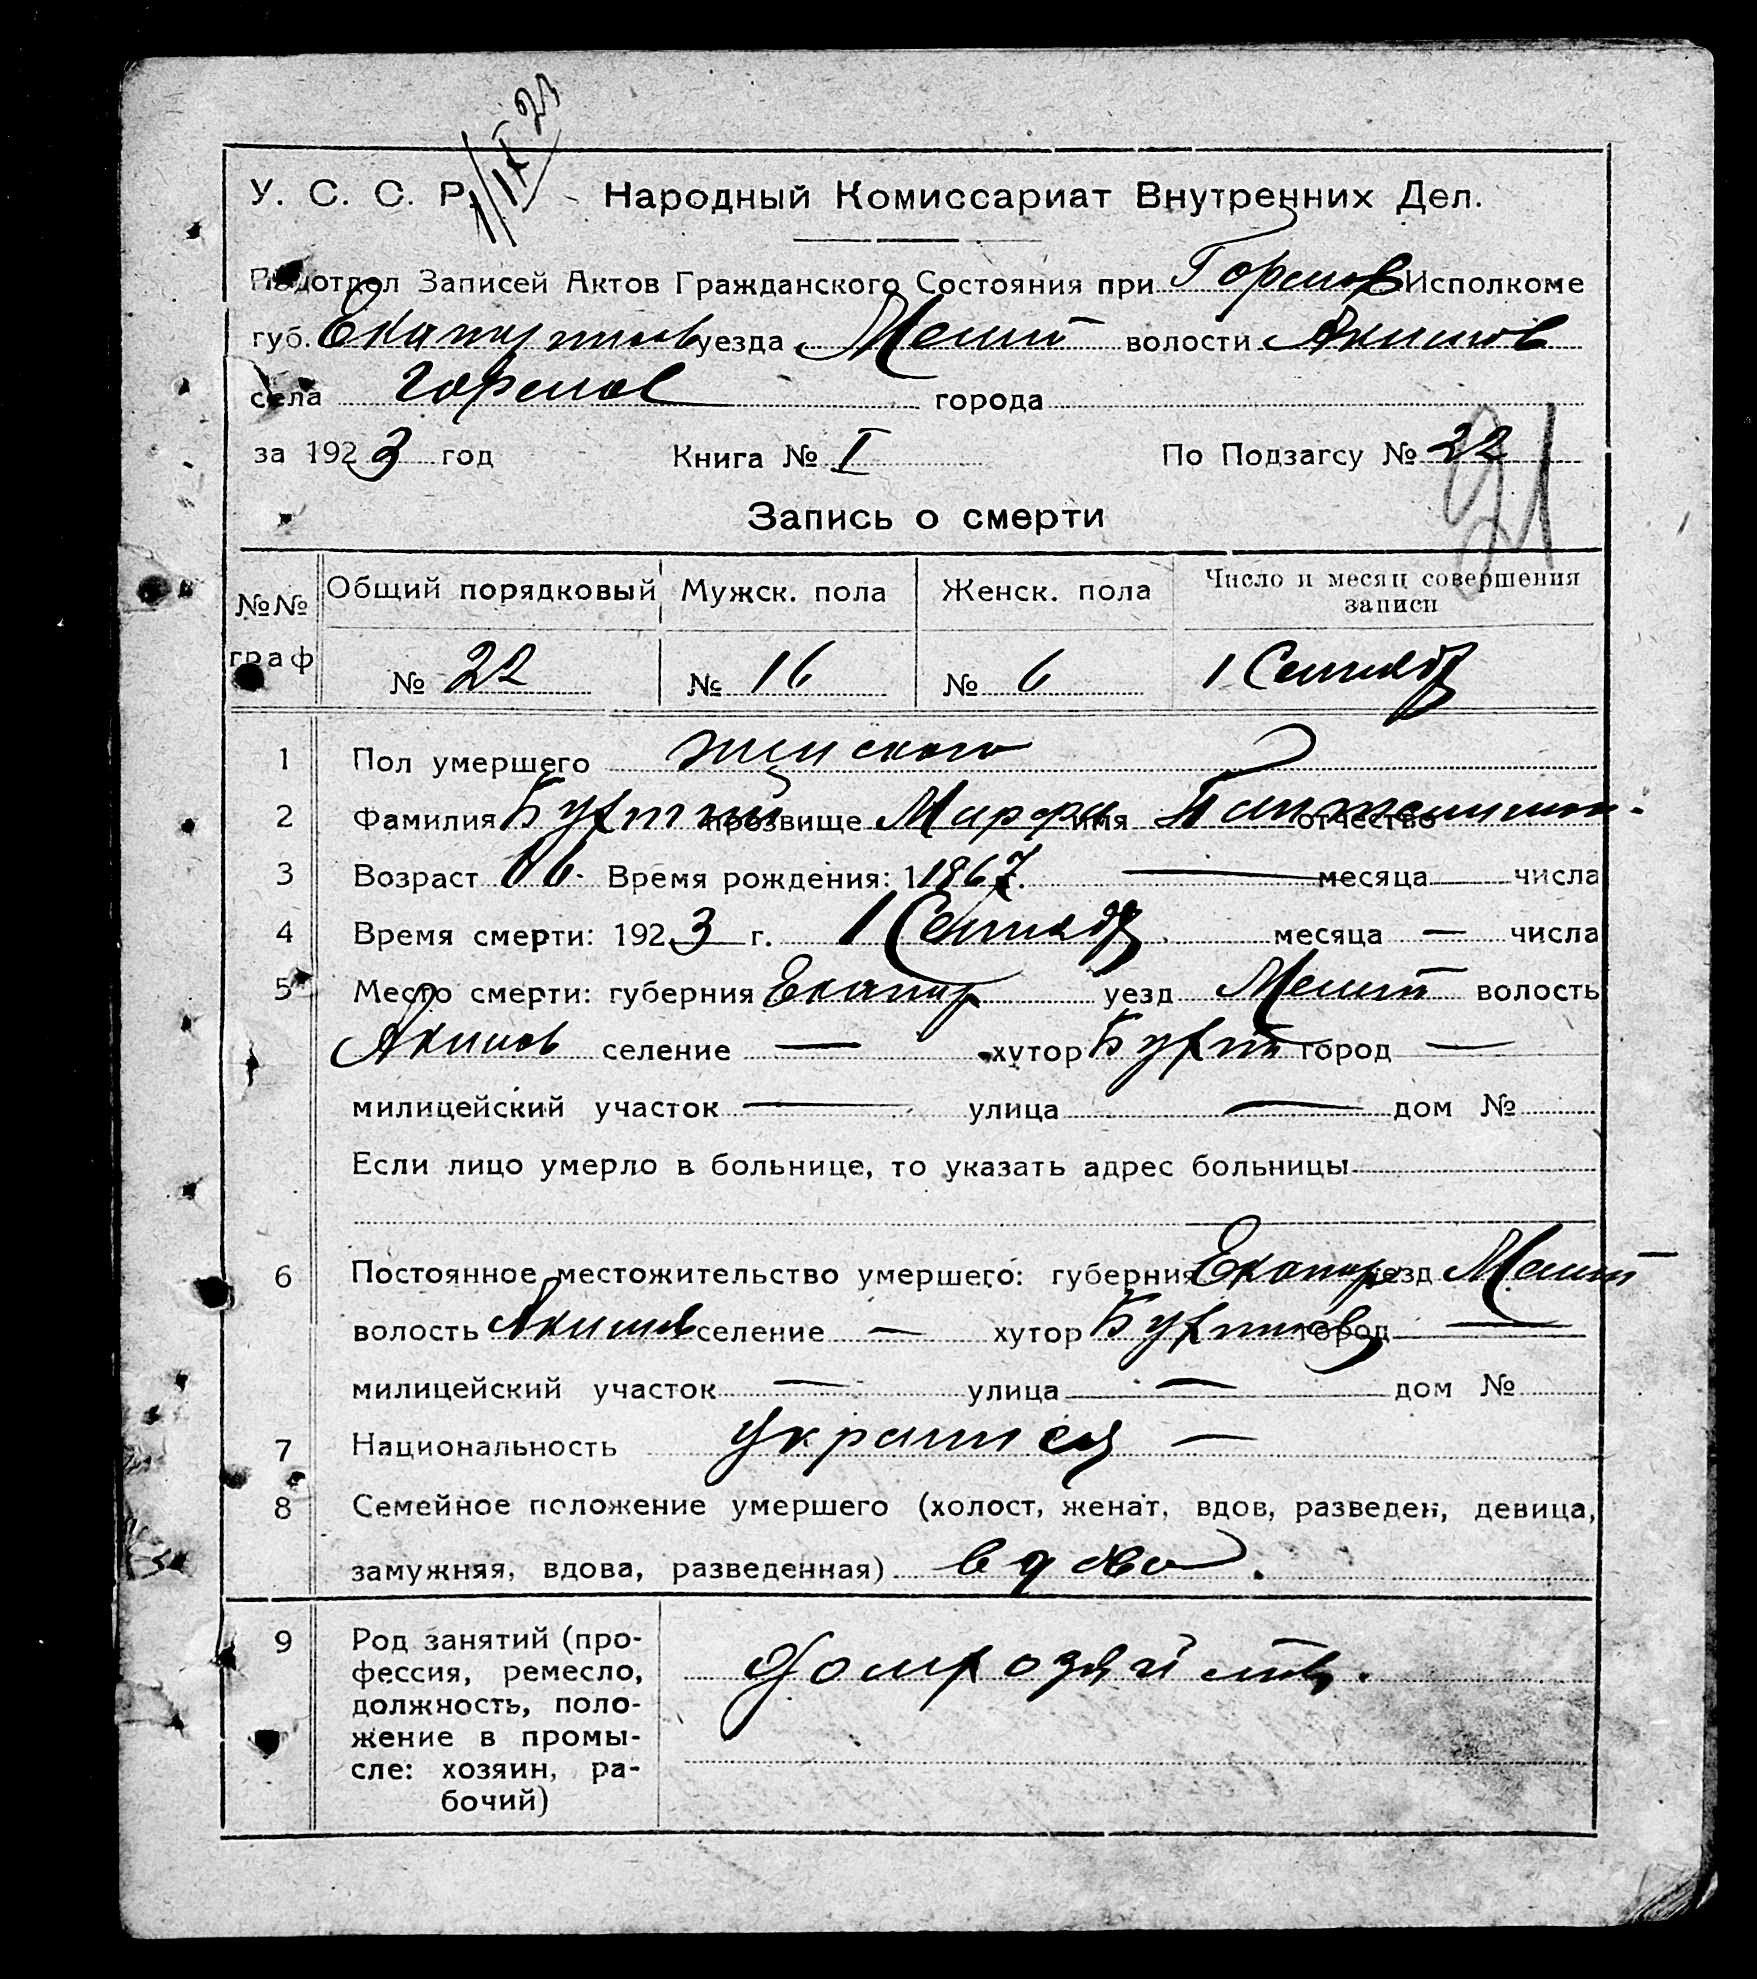 1/IX 23
У. С. С. Р. Народный Комиссариат Внутренних Дел.
Подотдел Записей Актов Гражданского Состояния при Горелов Исполкоме
губ. уезда Мелит волости Акимов
села Горелов города
за 1923 год Книга № I По Подзагсу № 22
Запись о смерти
№№ граф Общий порядковый Мужск. пола Женск. пола Число и месяц совершения записи
№ 22 № 16 № 6 1 Сентяб
1 Пол умершего женского
2 Фамилия прозвище Марфа имя отчество
3 Возраст Время рождения: 1 1867. — месяца числа
4 Время смерти: 1923 г. 1 Сентяб месяца — числа
5 Место смерти: губерния Екатер уезд Мелит волость
Акимов селение — хутор город —
милицейский участок — улица — дом №
Если лицо умерло в больнице, то указать адрес больницы
6 Постоянное местожительство умершего: губерния Екатер уезд Мелит
волость Акимов селение — хутор город —
милицейский участок — улица — дом №
7 Национальность —
8 Семейное положение умершего (холост, женат, вдов, разведен, девица,
замужняя, вдова, разведенная) вдова.
9 Род занятий (про-
фессия, ремесло,
должность, поло-
жение в промы-
сле: хозяин, ра-
бочий)
домхозяйств.